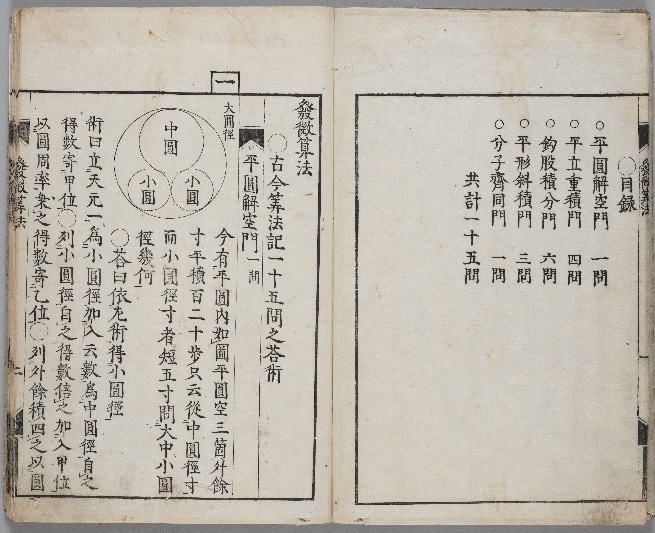 發微算法
〇目録
〇平圓解空門 一問
〇平立重積門 四問
〇鈎股積分門 六問
〇平形斜積門 三問
〇分子齊同門 一問
共計一十五問
發微算法
〇古今筭法記一十五問之荅術
平圓解空門 一問
今有平圓內如圖平圓空三箇外餘
寸平積百二十歩只云從中圓徑寸
而小圓徑寸者短五寸問大中小圓
徑幾何
〇荅曰依左術得小圓徑
術曰立天元一為小圓徑加入云數為中圓徑自之
得數寄甲位〇列小圓徑自之得數倍之加入甲位
以圓周率乘之得數寄乙位〇列外餘積四之以圓
一
大圓徑
中圓
小圓
小圓
發微算法
二